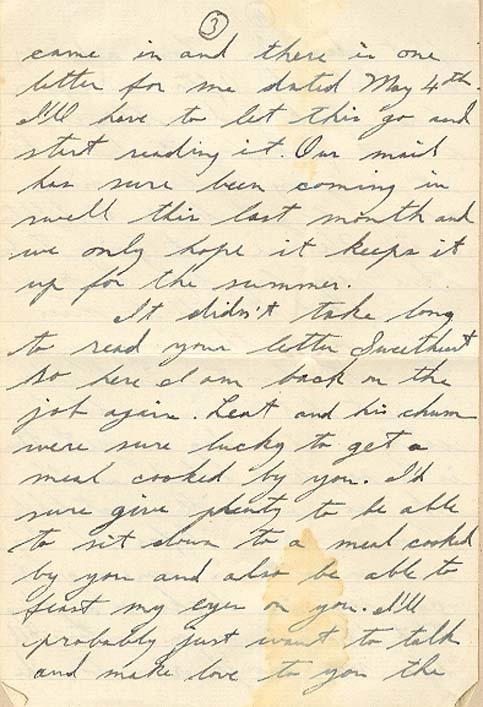 3
came in and there is one
letter for me dated May 4th.
I'll have to let this go and
start reading it. Our mail
has sure been coming in
swell this last month and
we only hope it keeps it
up for the summer.
It didn't take long
to read your letter Sweetheart
so here I am back on the
job again. and his chum
were sure lucky to get a
meal cooked by you. I'd
sure give plenty to be able
to sit down to a meal cooked
by you and also be able to
feast my eyes on you. I'll
probably just want to talk
and make love to you the